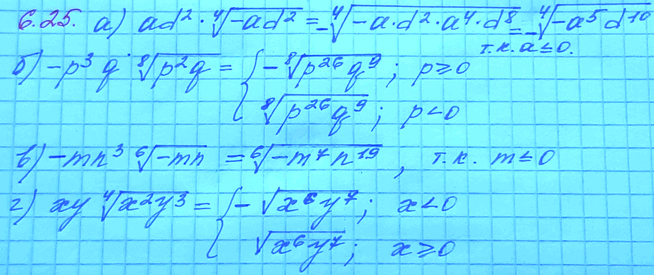 6.25. а) ad² · ⁴√(-ad²) = -⁴√(-a·d²·a⁴·d⁸) = -⁴√(-a⁵d¹⁰)
т.к. a≤0.
б) -p³q · ⁸√(p²q) = { -⁸√(p²⁶q⁹); p≥0
⁸√(p²⁶q⁹); p<0
в) -mn³ ⁶√(-mn) = ⁶√(-m⁷n¹⁹), т.к. m≤0
г) xy ⁴√(x²y³) = { -√(x⁶y⁷); x<0
√(x⁶y⁷); x≥0